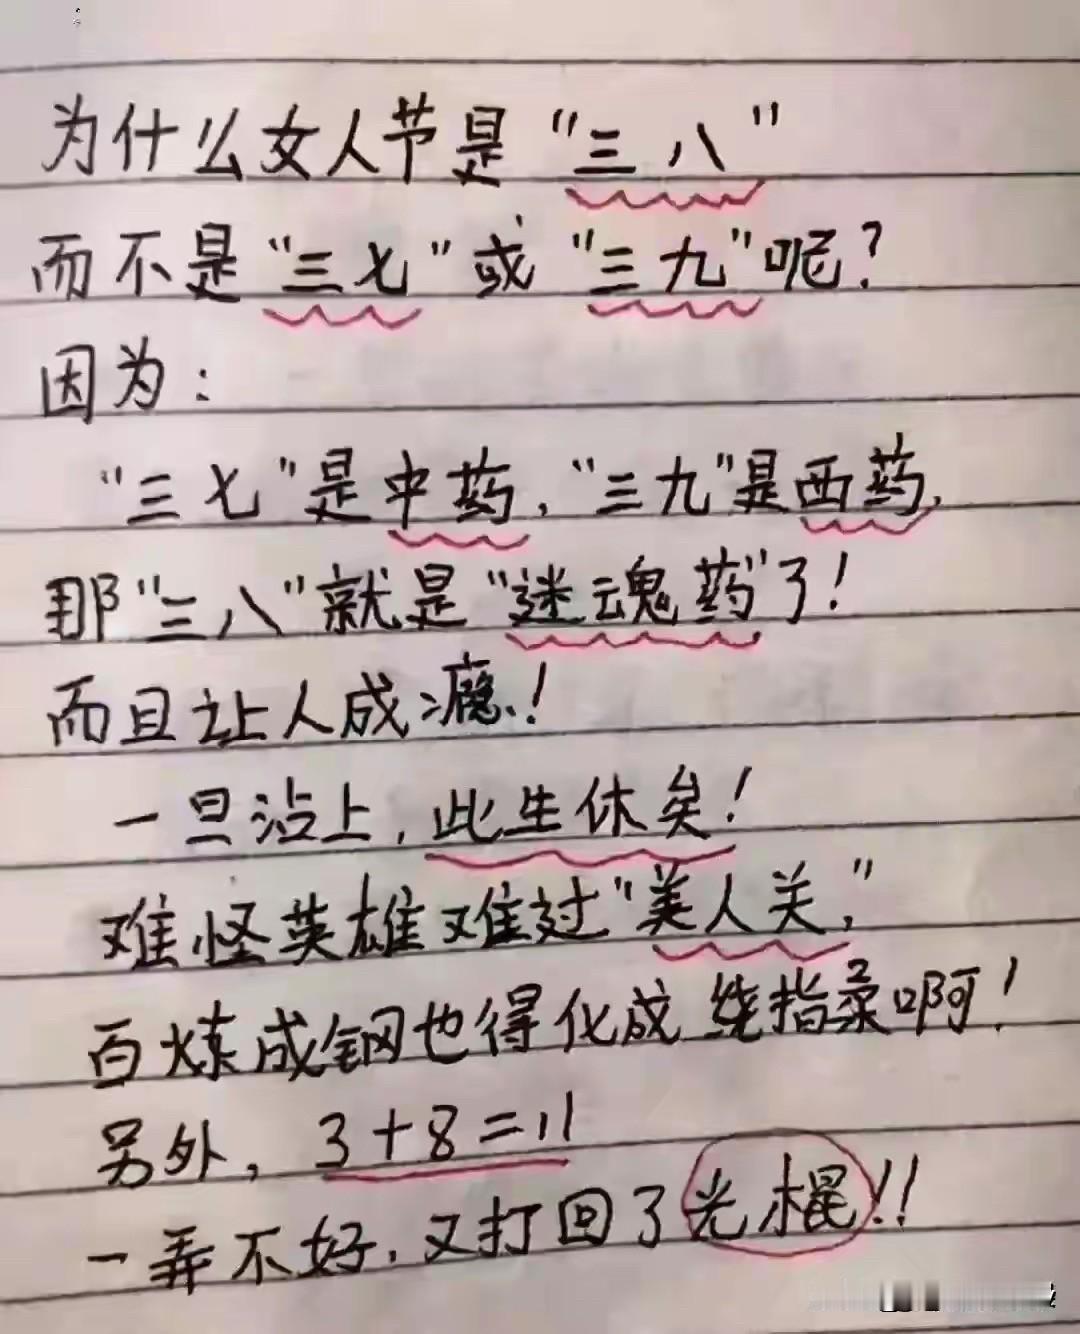 为什么女人节是“三八”
而不是“三七”或“三九”呢?
因为:
“三七”是中药,“三九”是西药,
那“三八”就是“迷魂药”了!
而且让人成瘾!
一旦沾上,此生休矣!
难怪英雄难过“美人关,”
百炼成钢也得化成绕指柔啊!
另外,3+8=11
一弄不好,又打回了光棍!!